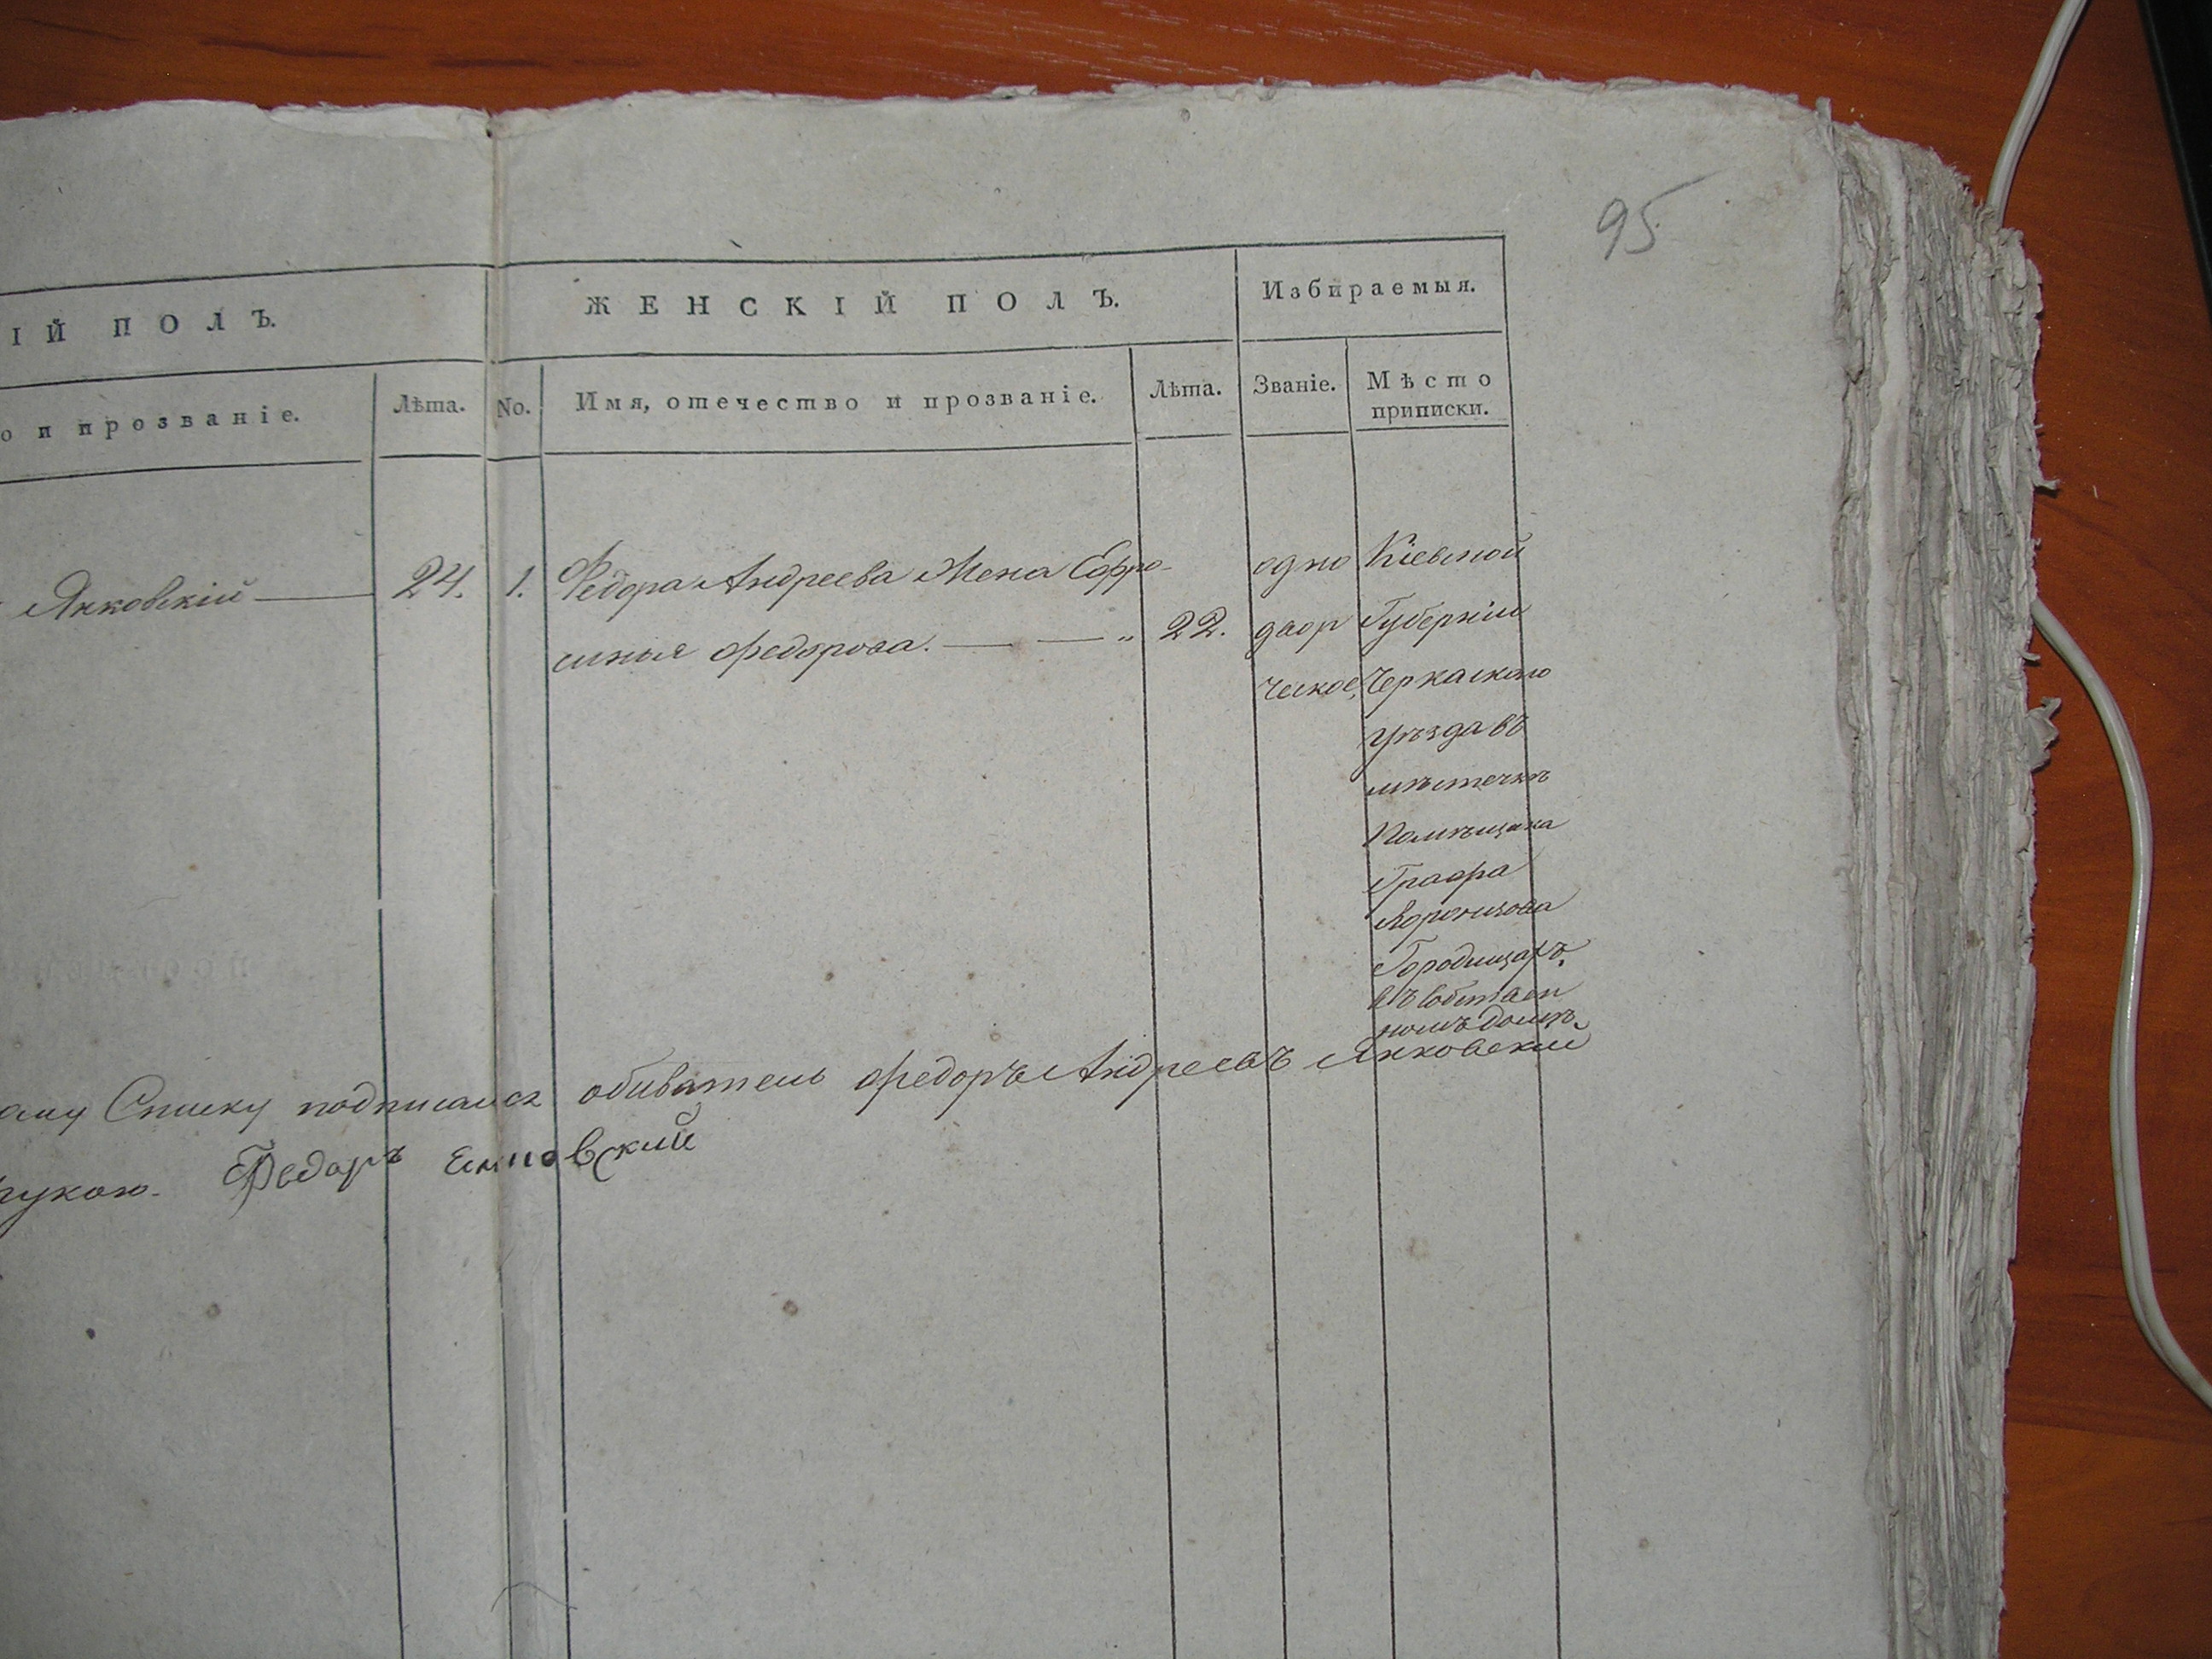 95
ІЙ ПОЛЪ.
ЖЕНСКІЙ ПОЛЪ.
Избираемыя.
о и прозваніе.
Лѣта.
No.
Имя, отечество и прозваніе.
Лѣта.
Званіе.
Мѣсто
приписки.
Янковскій
24.
1.
Федора Андреева Жена Ефро-
синья Федорова.
22.
одно
двор
ческое,
Кіевской
Губерніи
Черкаскаго
уѣзда въ
мѣстечкѣ
Помѣщика
Графа
Воронцова
Городищахъ,
въ собствен
номъ домѣ.
Списку подписался обиватель Федоръ Андреевъ Янковскій
рукою. Федоръ Енковский